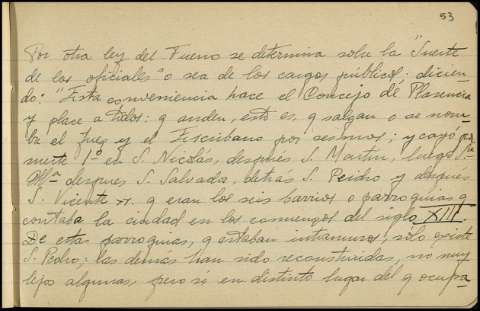 53
Por otra ley del Fuero se determina sobre la "Suerte
de los oficiales" o sea de los cargos públicos, dicien-
do: "Esta conveniencia hace el Concejo de Plasencia
y place a todos: q anden, esto es, q salgan o se nom-
bre el Juez y el Escribano por sesmos; y cayó
mente 1ª en S. Nicolás, despues S. Martin, luego Sta
Mª despues S. Salvador, detrás S. Pedro y despues
S. Vicente q eran los seis barrios o parroquias q
contaba la ciudad en los comienzos del siglo XIII.
De estas parroquias, q estaban intramuros, solo existe
S. Pedro; las demas han sido reconstruidas, no muy
lejos algunas, pero si en distinto lugar del q ocupa-